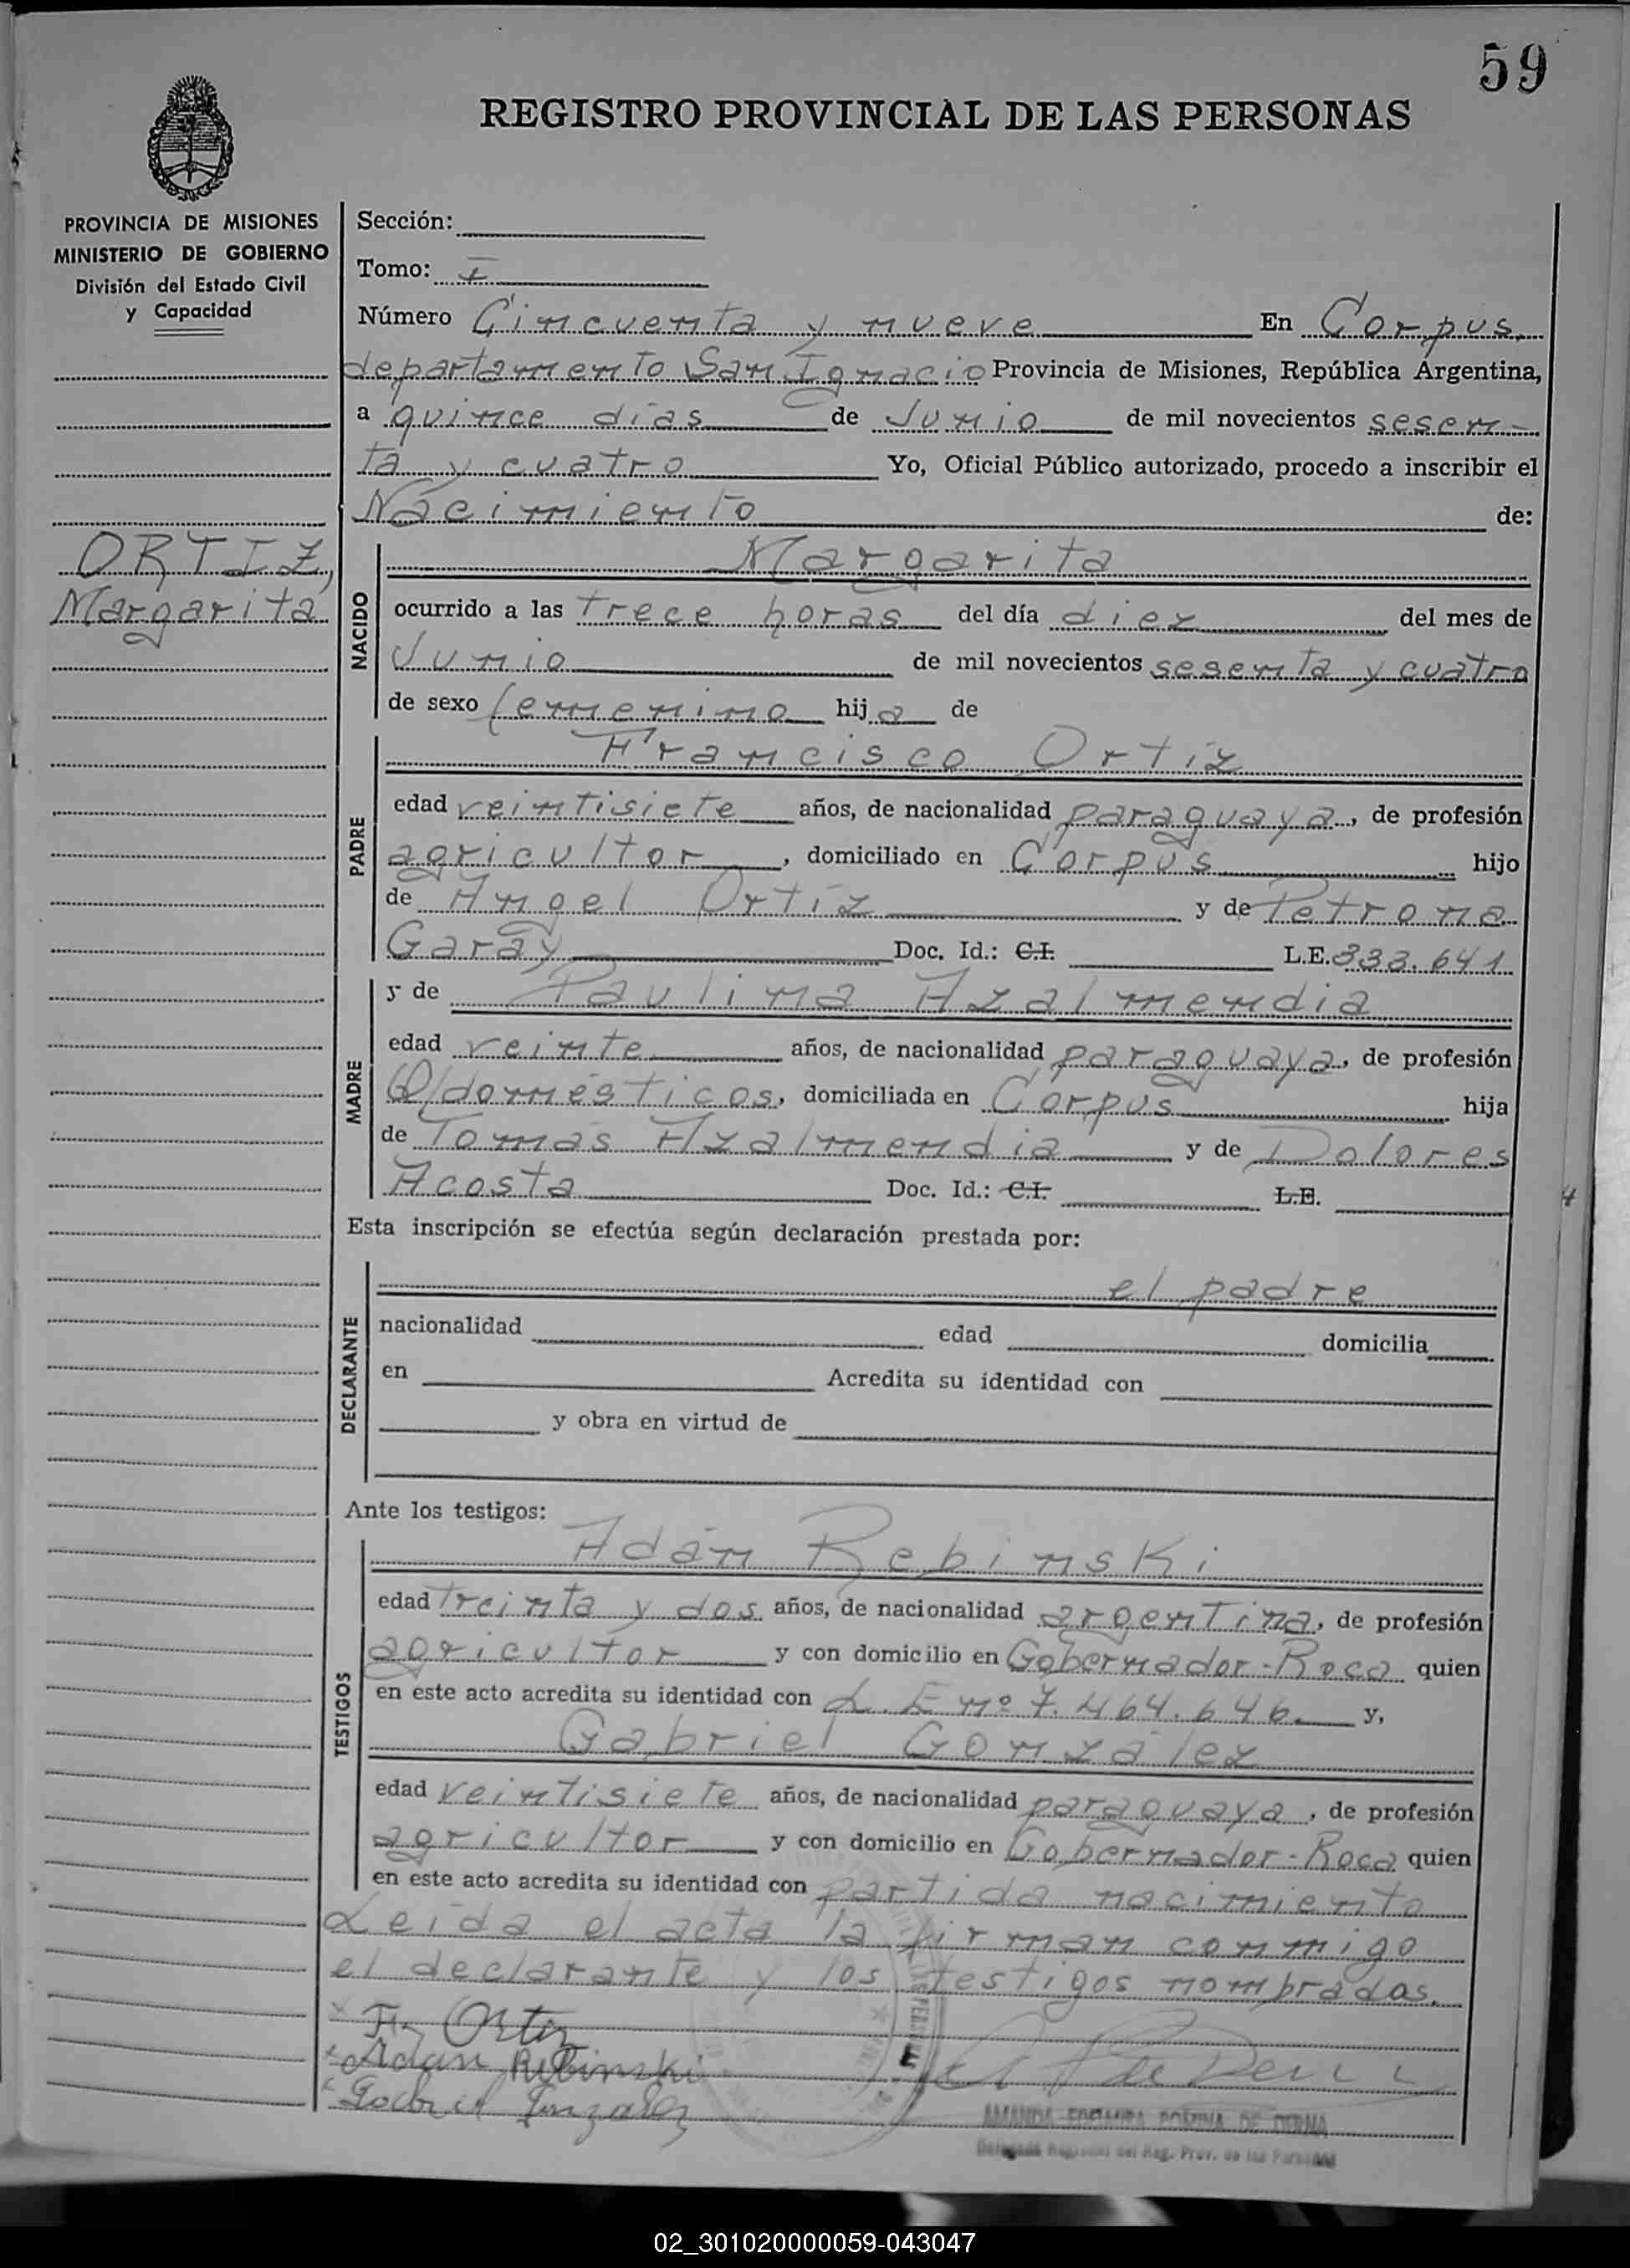 59
REGISTRO PROVINCIAL DE LAS PERSONAS
PROVINCIA DE MISIONES
MINISTERIO DE GOBIERNO
División del Estado Civil
y Capacidad
ORTIZ,
Margarita
Sección:
Tomo: I
Número Cincuenta y nueve En Corpus,
departamento San Ignacio Provincia de Misiones, República Argentina,
a quince días de Junio de mil novecientos sesen-
ta y cuatro Yo, Oficial Público autorizado, procedo a inscribir el
Nacimiento de:
NACIDO
Margarita
ocurrido a las trece horas del día diez del mes de
Junio de mil novecientos sesenta y cuatro
de sexo femenino hija de
PADRE
Francisco Ortíz
edad veintisiete años, de nacionalidad paraguaya, de profesión
agricultor, domiciliado en Corpus hijo
de Angel Ortíz y de Petrona
Garay Doc. Id.: C.I. L.E. 333.641
MADRE
y de Paulina Azalmendia
edad veinte años, de nacionalidad paraguaya, de profesión
Q/domésticos, domiciliada en Corpus hija
de Tomás Azalmendia y de Dolores
Acosta Doc. Id.: C.I. L.E.
Esta inscripción se efectúa según declaración prestada por:
DECLARANTE
el padre
nacionalidad edad domicilia
en Acredita su identidad con
y obra en virtud de
Ante los testigos:
TESTIGOS
Adán Rebinski
edad treinta y dos años, de nacionalidad argentina, de profesión
agricultor y con domicilio en Gobernador-Roca quien
en este acto acredita su identidad con L.E nº 7.464.646 y,
Gabriel González
edad veintisiete años, de nacionalidad paraguaya, de profesión
agricultor y con domicilio en Gobernador-Roca quien
en este acto acredita su identidad con partida nacimiento
Leída el acta la firman conmigo
el declarante y los testigos nombrados.
Ortiz
Adan Rebinski
Gabriel Gonzalez
AMANDA DE DERNA
Delegada Regional del Reg. Prov. de las Personas
02_301020000059-043047